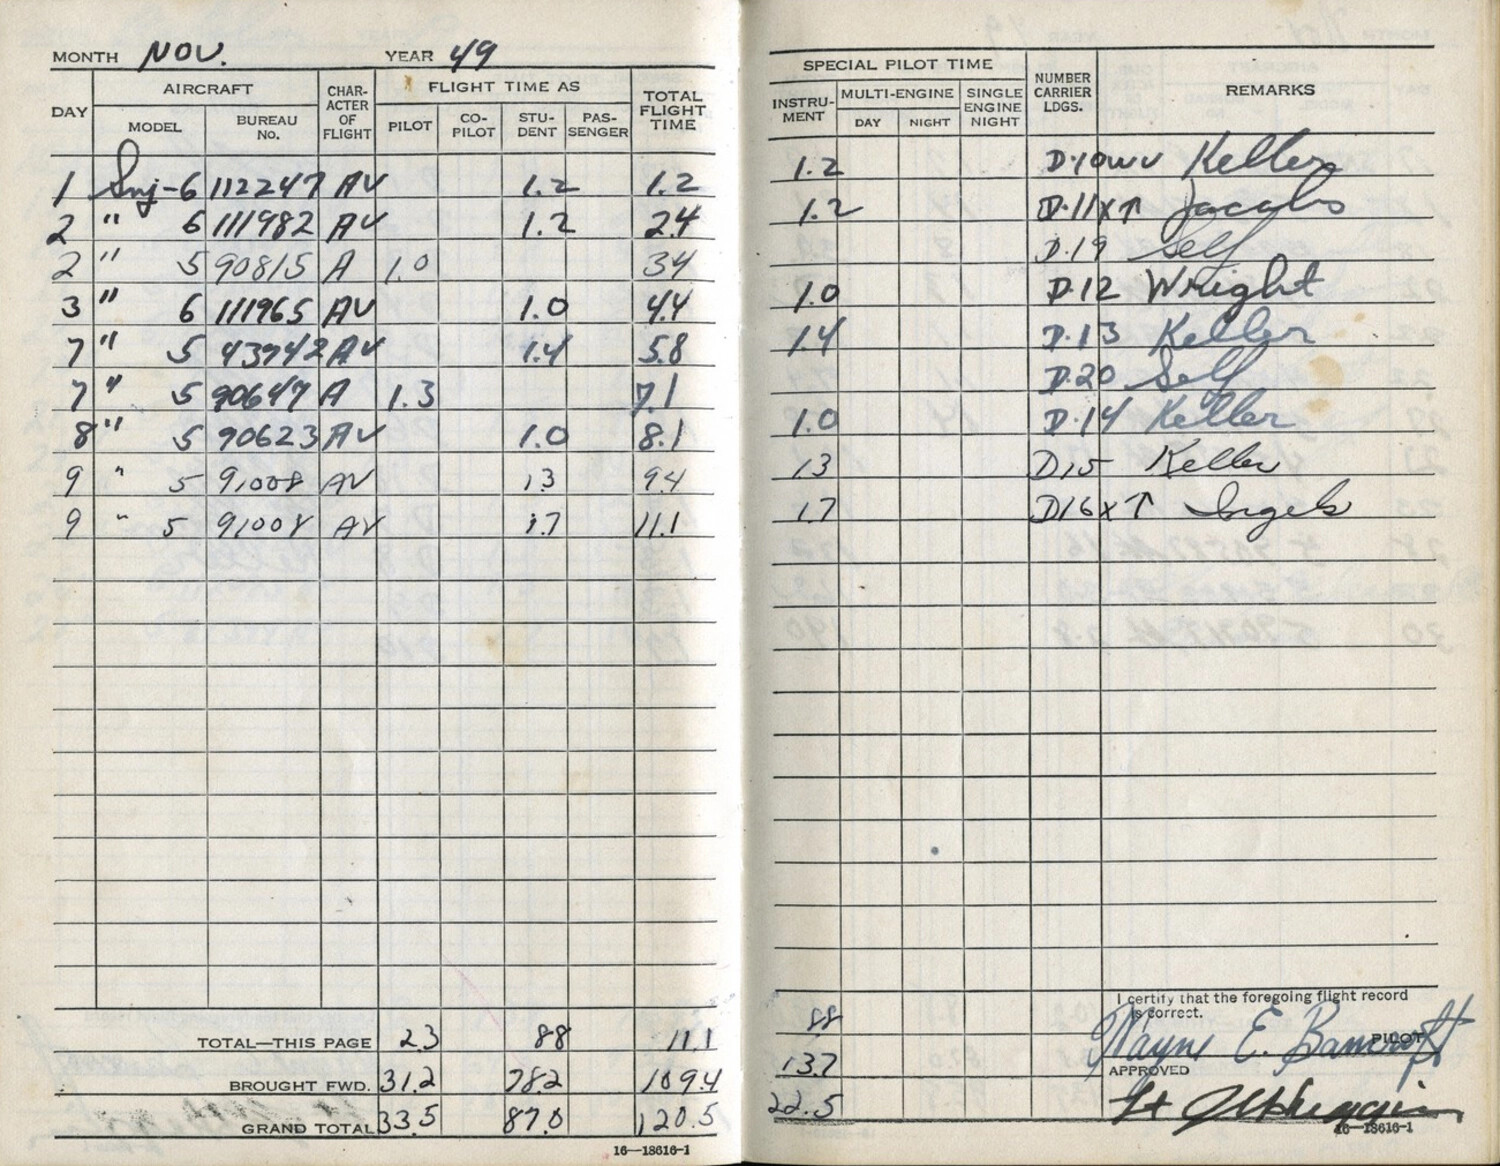 MONTH NOV. YEAR 49
DAY AIRCRAFT CHAR-ACTER OF FLIGHT FLIGHT TIME AS TOTAL FLIGHT TIME
MODEL BUREAU NO. PILOT CO-PILOT STU-DENT PAS-SENGER
1 Snj-6 112247 AV 1.2 1.2
2 " 6 111982 AV 1.2 2.4
2 " 5 90815 A 1.0 34
3 " 6 111965 AV 1.0 4.4
7 " 5 43742 AV 1.4 5.8
7 " 5 90647 A 1.3 7.1
8 " 5 90623 AV 1.0 8.1
9 " 5 91008 AV 13 94
9 " 5 91008 AV 1.7 11.1
TOTAL—THIS PAGE 23 88 11.1
BROUGHT FWD. 31.2 782 109.4
GRAND TOTAL 33.5 87.0 120.5
16—18616-1
SPECIAL PILOT TIME NUMBER CARRIER LDGS. REMARKS
INSTRU-MENT MULTI-ENGINE SINGLE ENGINE NIGHT
DAY NIGHT
1.2 D.10wv Keller
1.2 D.11x↑ Jacobs
D.19 Self
1.0 D.12 Wright
1.4 D.13 Keller
D.20 Self
1.0 D.14 Keller
13 D15 Keller
1.7 D16x↑
I certify that the foregoing flight record is correct.
88 Wayne E. Bancroft PILOT
13.7 APPROVED
22.5 Lt
16—18616-1